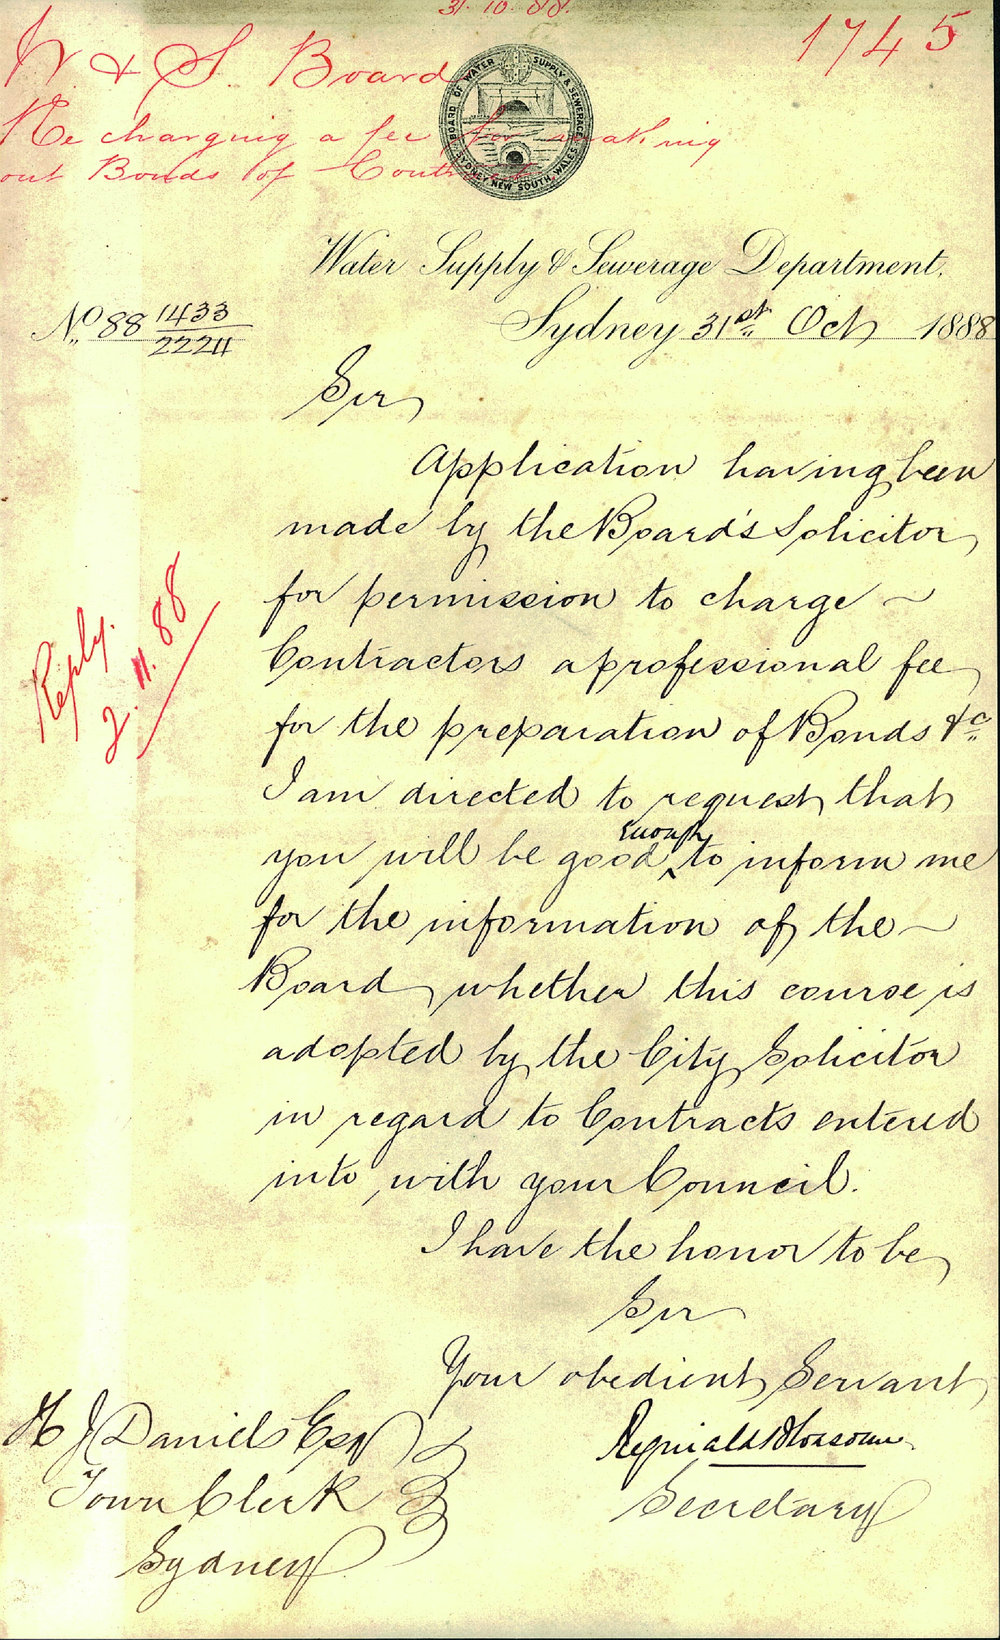 31.10.88.
1745
W & S. Board
Re charging a fee for making
out Bonds of Contract
BOARD OF WATER SUPPLY & SEWERAGE
SYDNEY NEW SOUTH WALES
Water Supply & Sewerage Department.
No 88 1433
2224
Sydney 31st Oct 1888
Sir
Application having been
made by the Board's Solicitor
for permission to charge ~
Contractors a professional fee
for the preparation of Bonds &c
I am directed to request that
enough
you will be good ‸ to inform me
for the information of the ~
Board, whether this course is
adopted by the City Solicitor
in regard to Contracts entered
into with your Council.
Reply.
2.11.88
I have the honor to be
Sir
Your obedient Servant
Reginald
Secretary
H J Daniels Esq
Town Clerk
Sydney